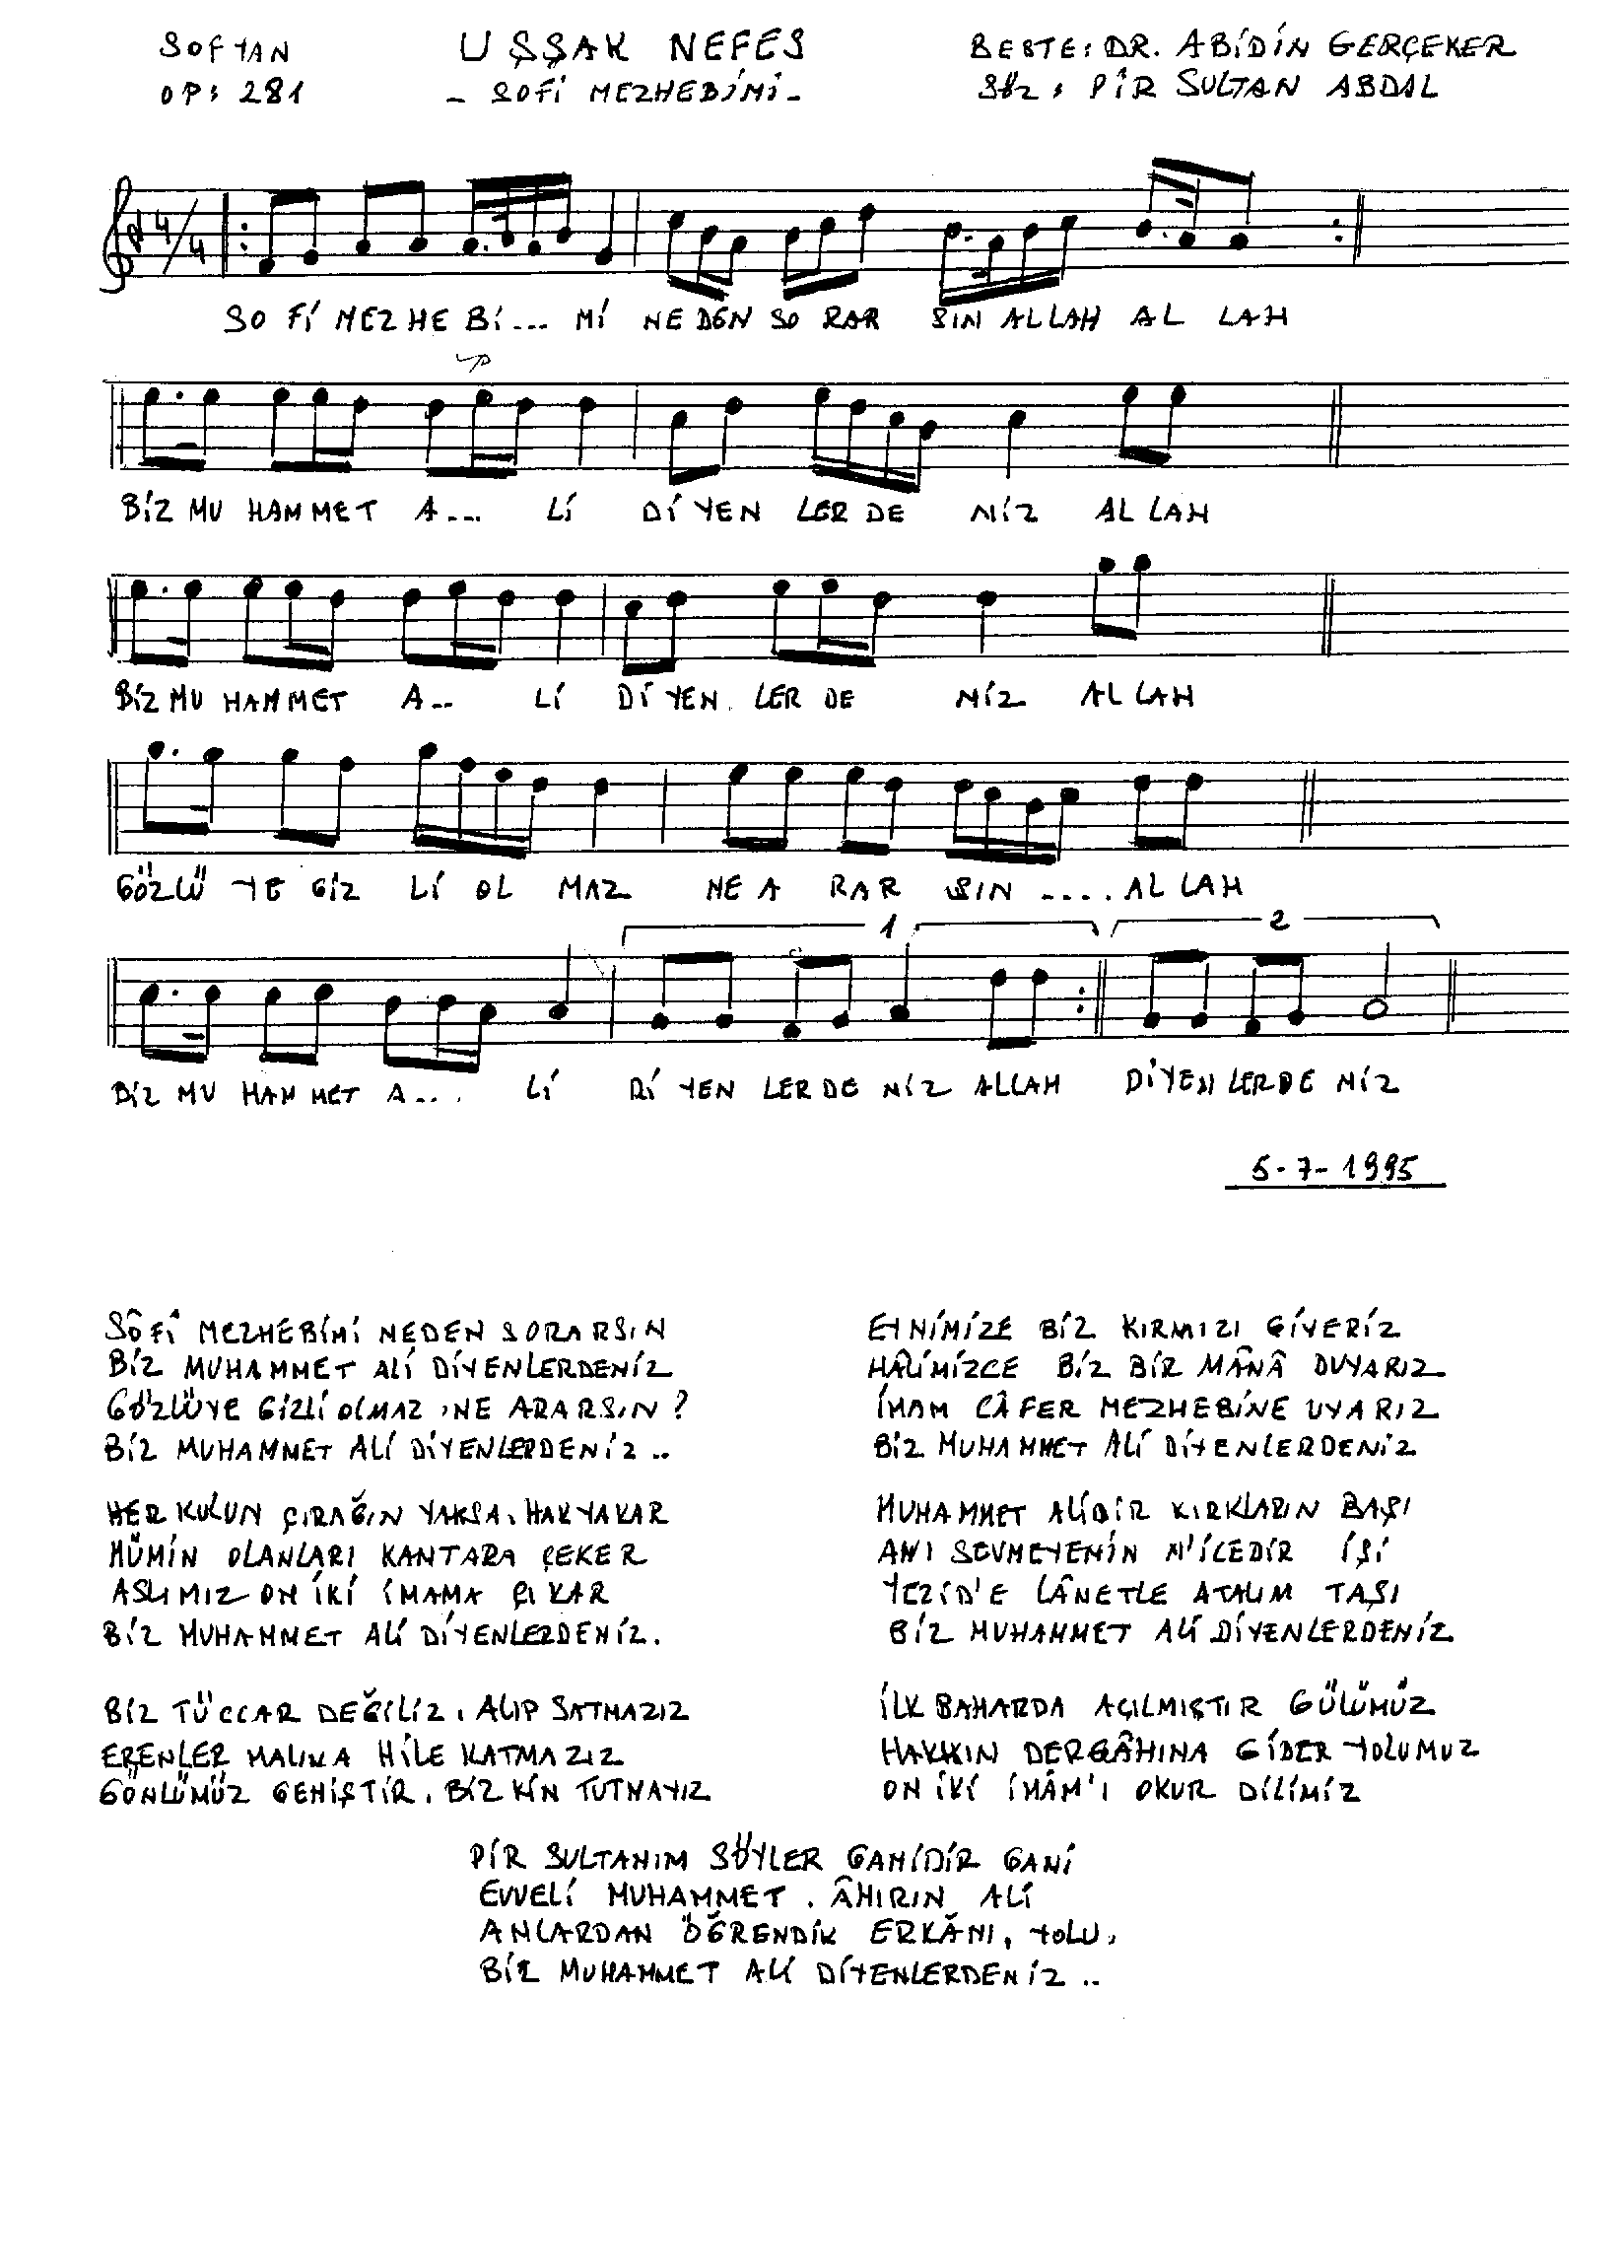 SOFYAN
OP: 281
UŞŞAK NEFES
- SOFİ MEZHEBİMİ -
BESTE: DR. ABİDİN GERÇEKER
SÖZ: PİR SULTAN ABDAL
4/4
SO Fİ MEZ HE Bİ... Mİ NE DEN SO RAR SIN ALLAH AL LAH
BİZ MU HAM MET A... Lİ Dİ YEN LER DE NİZ AL LAH
BİZ MU HAM MET A.. Lİ Dİ YEN LER DE NİZ AL LAH
GÖZLÜ YE GİZ Lİ OL MAZ NE A RAR SIN .... AL LAH
1 2
BİZ MU HAM MET A... Lİ Dİ YEN LER DE NİZ ALLAH DİYEN LERDE NİZ
5-7-1995
SÔFÎ MEZHEBİMİ NEDEN SORARSIN
BİZ MUHAMMET ALİ DİYENLERDENİZ
GÖZLÜYE GİZLİ OLMAZ, NE ARARSIN?
BİZ MUHAMMET ALİ DİYENLERDENİZ..
HER KULUN ÇIRAĞIN YAKSA, HAK YAKAR
MÜMİN OLANLARI KANTARA ÇEKER
ASLIMIZ ON İKİ İMAMA ÇIKAR
BİZ MUHAMMET ALİ DİYENLERDENİZ.
BİZ TÜCCAR DEĞİLİZ, ALIP SATMAZIZ
ERENLER MALINA HİLE KATMAZIZ
GÖNLÜMÜZ GENİŞTİR, BİZ KİN TUTMAYIZ
EYNİMİZE BİZ KIRMIZI GİYERİZ
HÂLİMİZCE BİZ BİR MÂNÂ DUYARIZ
İMAM CÂFER MEZHEBİNE UYARIZ
BİZ MUHAMMET ALİ DİYENLERDENİZ
MUHAMMET ALİDİR KIRKLARIN BAŞI
ANI SEVMEYENİN N'İCEDİR İŞİ
YEZİD'E LÂNETLE ATALIM TAŞI
BİZ MUHAMMET ALİ DİYENLERDENİZ
İLK BAHARDA AÇILMIŞTIR GÜLÜMÜZ
HAKKIN DERGÂHINA GİDER YOLUMUZ
ON İKİ İMÂM'I OKUR DİLİMİZ
PİR SULTANIM SÖYLER GANİDİR GANİ
EVVELİ MUHAMMET, ÂHIRIN ALİ
ANLARDAN ÖĞRENDİK ERKÂNI, YOLU,
BİZ MUHAMMET ALİ DİYENLERDENİZ..